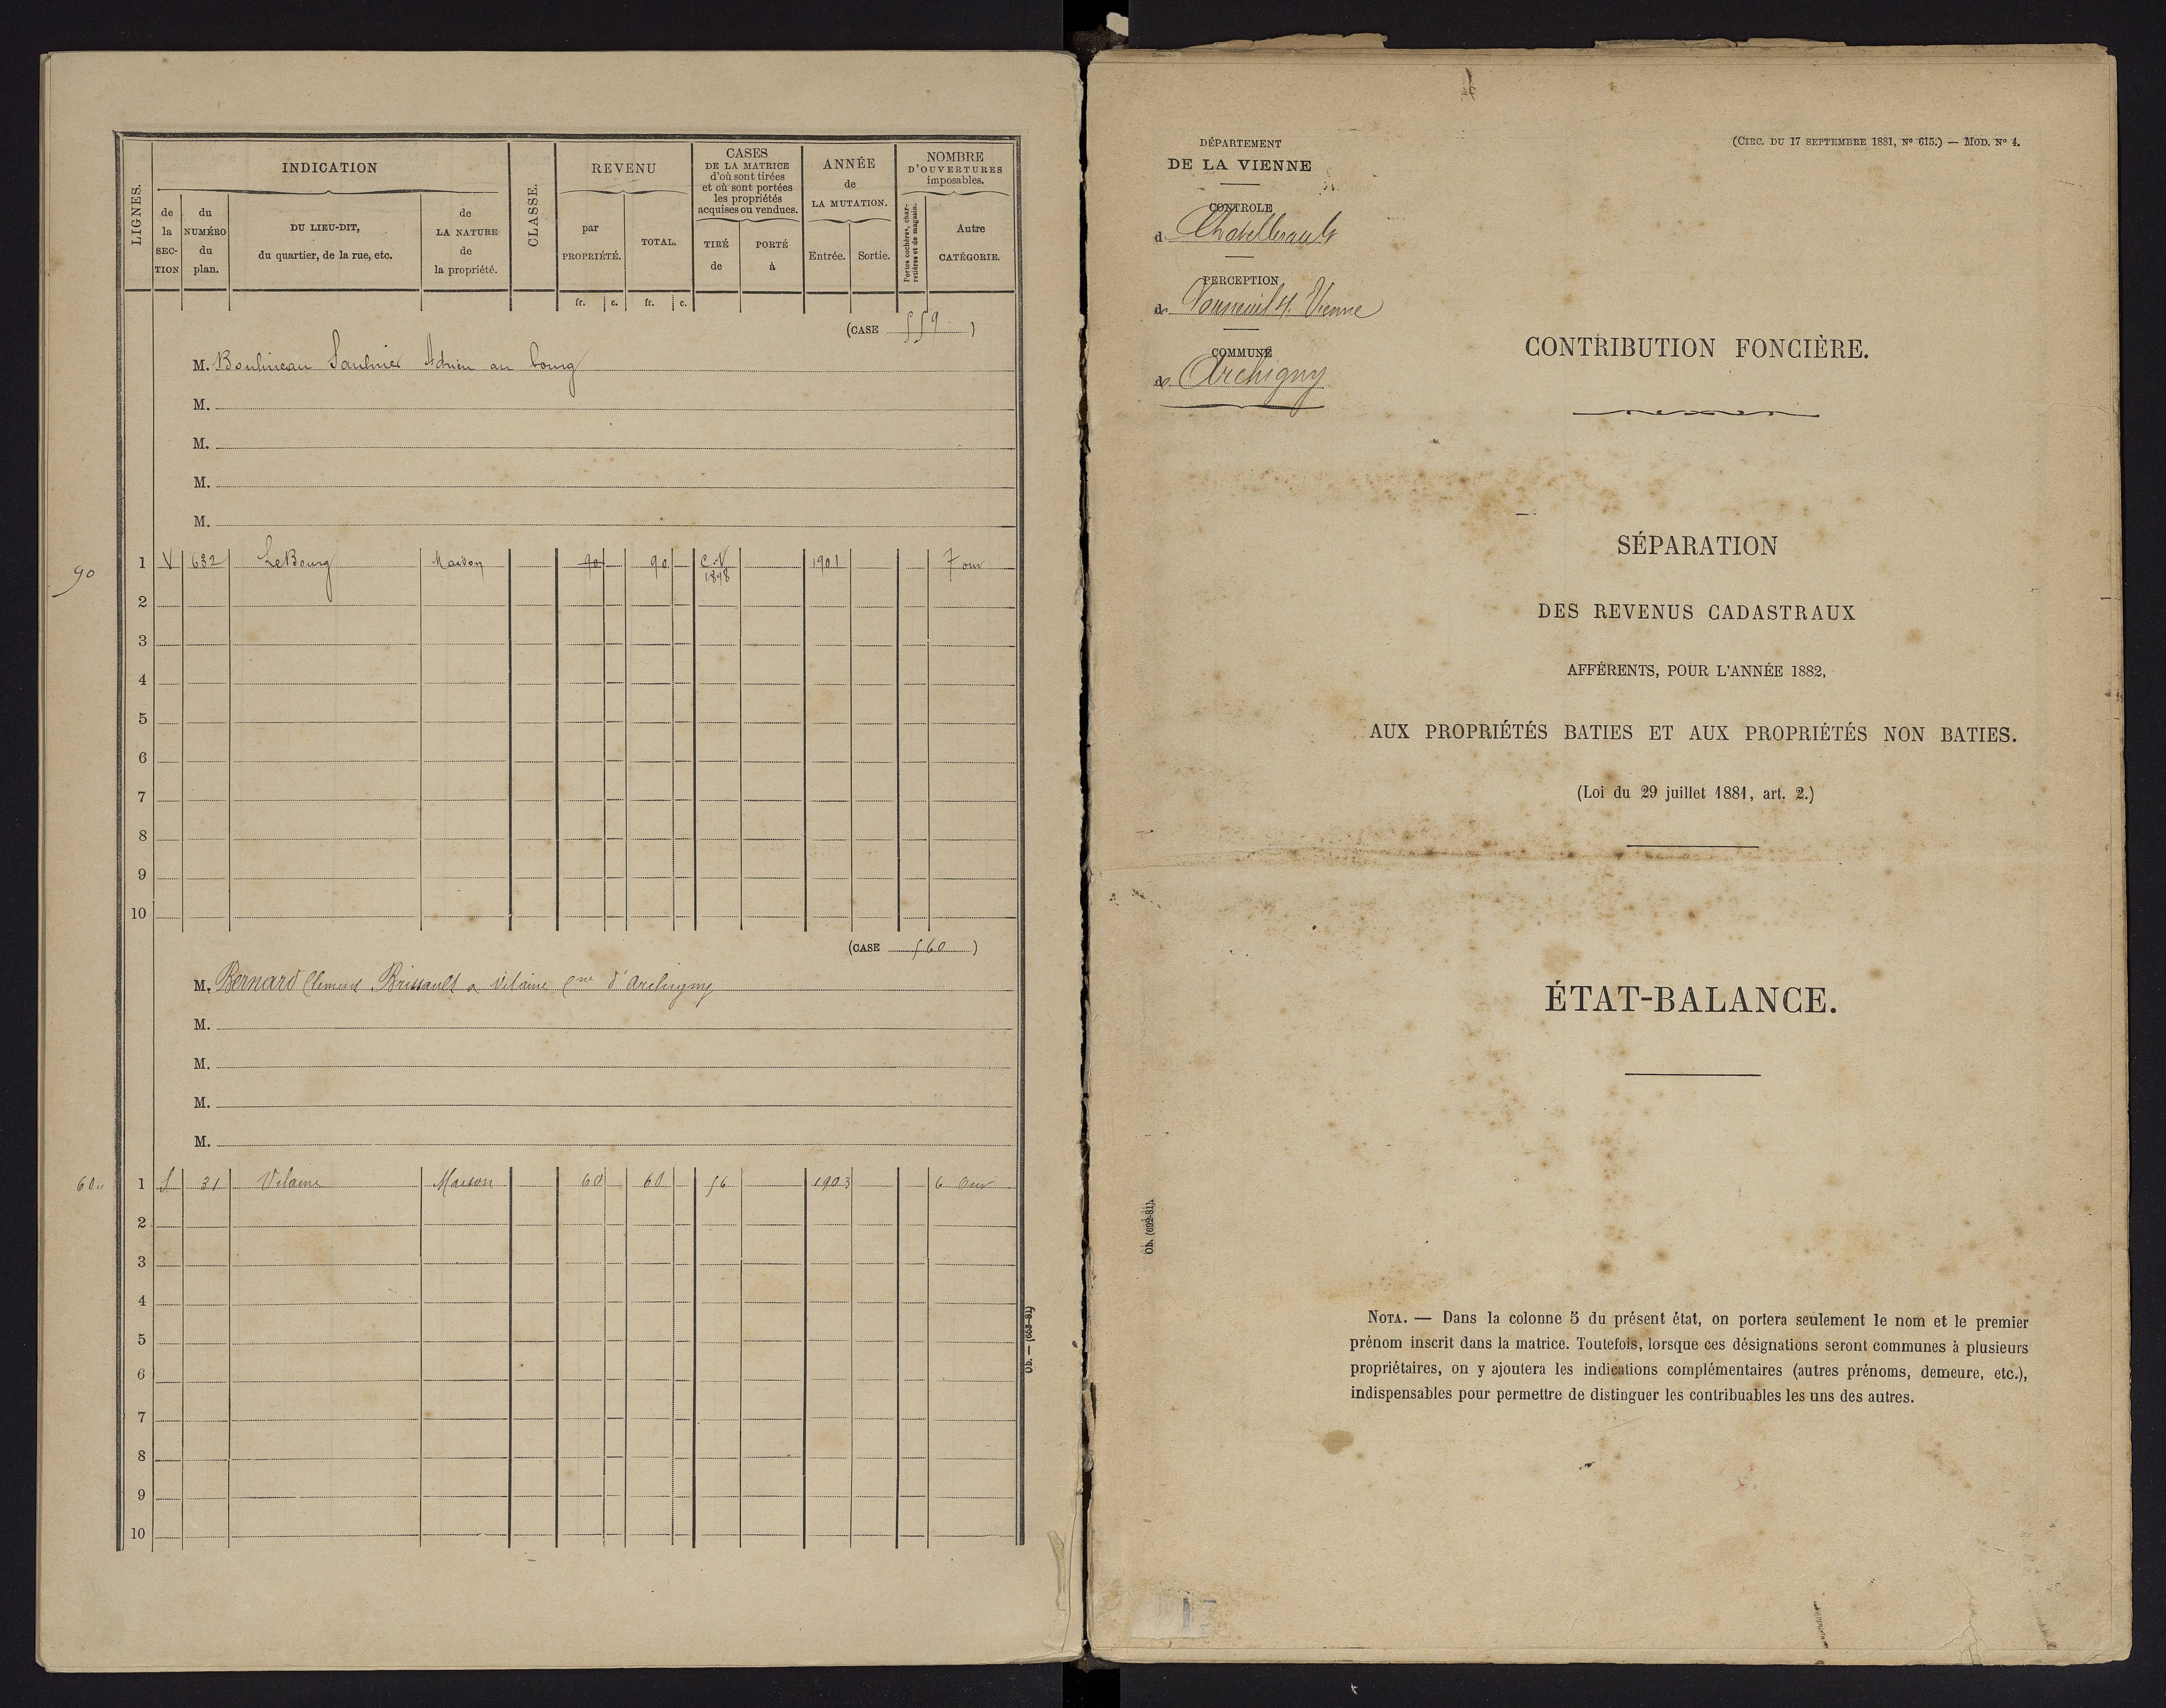 LIGNES.
INDICATION
de la SECTION
du NUMÉRO du plan.
DU LIEU-DIT,
du quartier, de la rue, etc.
de LA NATURE de la propriété.
CLASSE.
REVENU
par PROPRIÉTÉ.
TOTAL.
CASES
DE LA MATRICE
d'où sont tirées
et où sont portées
les propriétés
acquises ou vendues.
TIRÉ de
PORTÉ à
ANNÉE
de
LA MUTATION.
Entrée.
Sortie.
NOMBRE
D'OUVERTURES
imposables.
Portes cochères, charretières et de magasin.
Autre
CATÉGORIE.
fr. c. fr. c.
(CASE 559 )
M. Boulineau Saulnier Adrien au bourg
M.
M.
M.
M.
90 1 V 632 Le Bourg Maison 90 90 C.N 1898 1901 7 ouv
2
3
4
5
6
7
8
9
10
(CASE 560 )
M. Bernard Clement Brissault a Vilaine Cne d'Archigny
M.
M.
M.
M.
60 1 S 31 Vilaine Maison 60 60 56 1903 6 Ouv
2
3
4
5
6
7
8
9
10
Ob. — (693-81)
DÉPARTEMENT
DE LA VIENNE
CONTROLE
d Chatellerault
PERCEPTION
de Vouneuil s/. Vienne
COMMUNE
de Archigny
(CIRC. DU 17 SEPTEMBRE 1881, Nº 615.) — MOD. Nº 4.
CONTRIBUTION FONCIÈRE.
SÉPARATION
DES REVENUS CADASTRAUX
AFFÉRENTS, POUR L'ANNÉE 1882,
AUX PROPRIÉTÉS BATIES ET AUX PROPRIÉTÉS NON BATIES.
(Loi du 29 juillet 1881, art. 2.)
ÉTAT-BALANCE.
Ob. (692-81).
NOTA. — Dans la colonne 5 du présent état, on portera seulement le nom et le premier
prénom inscrit dans la matrice. Toutefois, lorsque ces désignations seront communes à plusieurs
propriétaires, on y ajoutera les indications complémentaires (autres prénoms, demeure, etc.),
indispensables pour permettre de distinguer les contribuables les uns des autres.